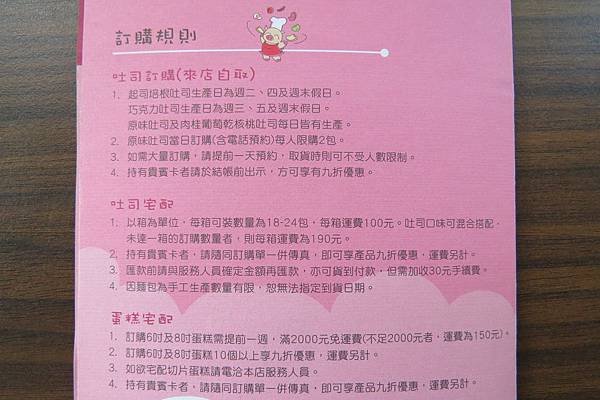 訂購規則
吐司訂購(來店自取)
1. 起司培根吐司生產日為週二、四及週末假日。
巧克力吐司生產日為週三、五及週末假日。
原味吐司及肉桂葡萄乾核桃吐司每日皆有生產。
2. 原味吐司當日訂購(含電話預約)每人限購2包。
3. 如需大量訂購，請提前一天預約，取貨時則可不受人數限制。
4. 持有貴賓卡者請於結帳前出示，方可享有九折優惠。
吐司宅配
1. 以箱為單位，每箱可裝數量為18-24包，每箱運費100元。吐司口味可混合搭配，
未達一箱的訂購數量者，則每箱運費為190元。
2. 持有貴賓卡者，請隨同訂購單一併傳真，即可享產品九折優惠，運費另計。
3. 匯款前請與服務人員確定金額再匯款，亦可貨到付款，但需加收30元手續費。
4. 因麵包為手工生產數量有限，恕無法指定到貨日期。
蛋糕宅配
1. 訂購6吋及8吋蛋糕需提前一週，滿2000元免運費(不足2000元者，運費為150元)。
2. 訂購6吋及8吋蛋糕10個以上享九折優惠，運費另計。
3. 如欲宅配切片蛋糕請電洽本店服務人員。
4. 持有貴賓卡者，請隨同訂購單一併傳真，即可享產品九折優惠，運費另計。